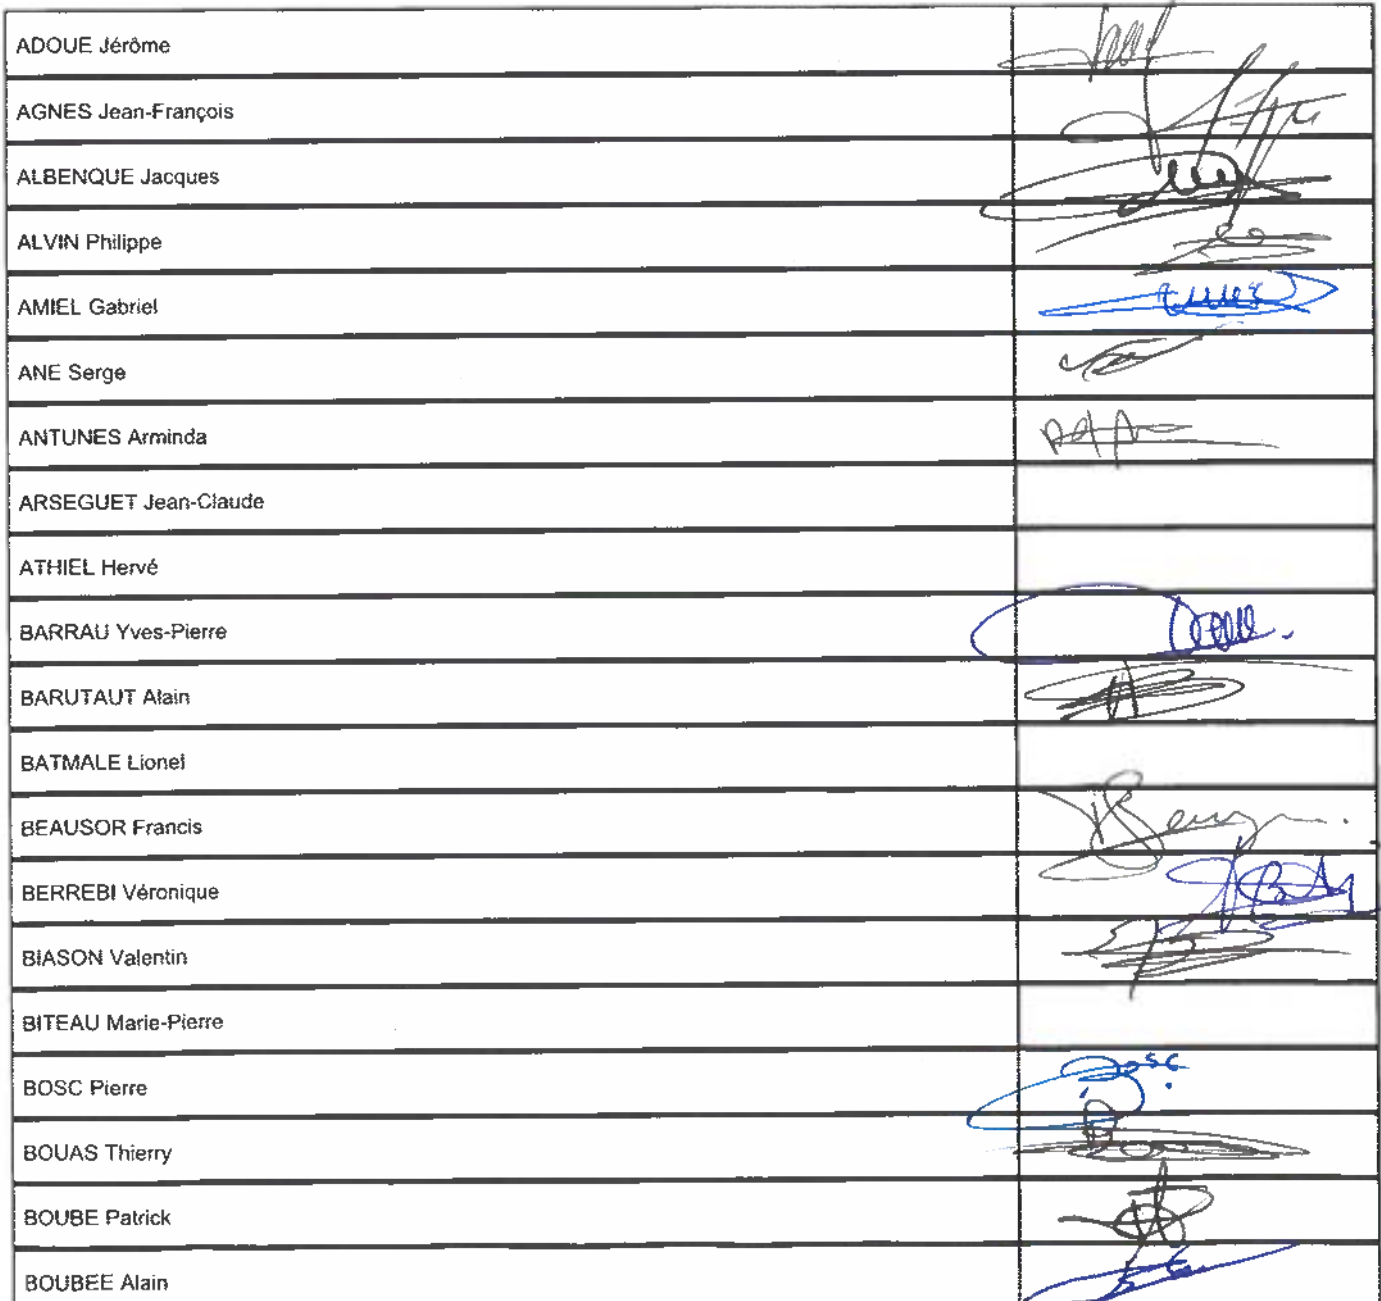 ADOUE Jérôme
AGNES Jean-François
ALBENQUE Jacques
ALVIN Philippe
AMIEL Gabriel
ANE Serge
ANTUNES Arminda
ARSEGUET Jean-Claude
ATHIEL Hervé
BARRAU Yves-Pierre
BARUTAUT Alain
BATMALE Lionel
BEAUSOR Francis
BERREBI Véronique
BIASON Valentin
BITEAU Marie-Pierre
BOSC Pierre
Bosc
BOUAS Thierry
BOUBE Patrick
BOUBEE Alain